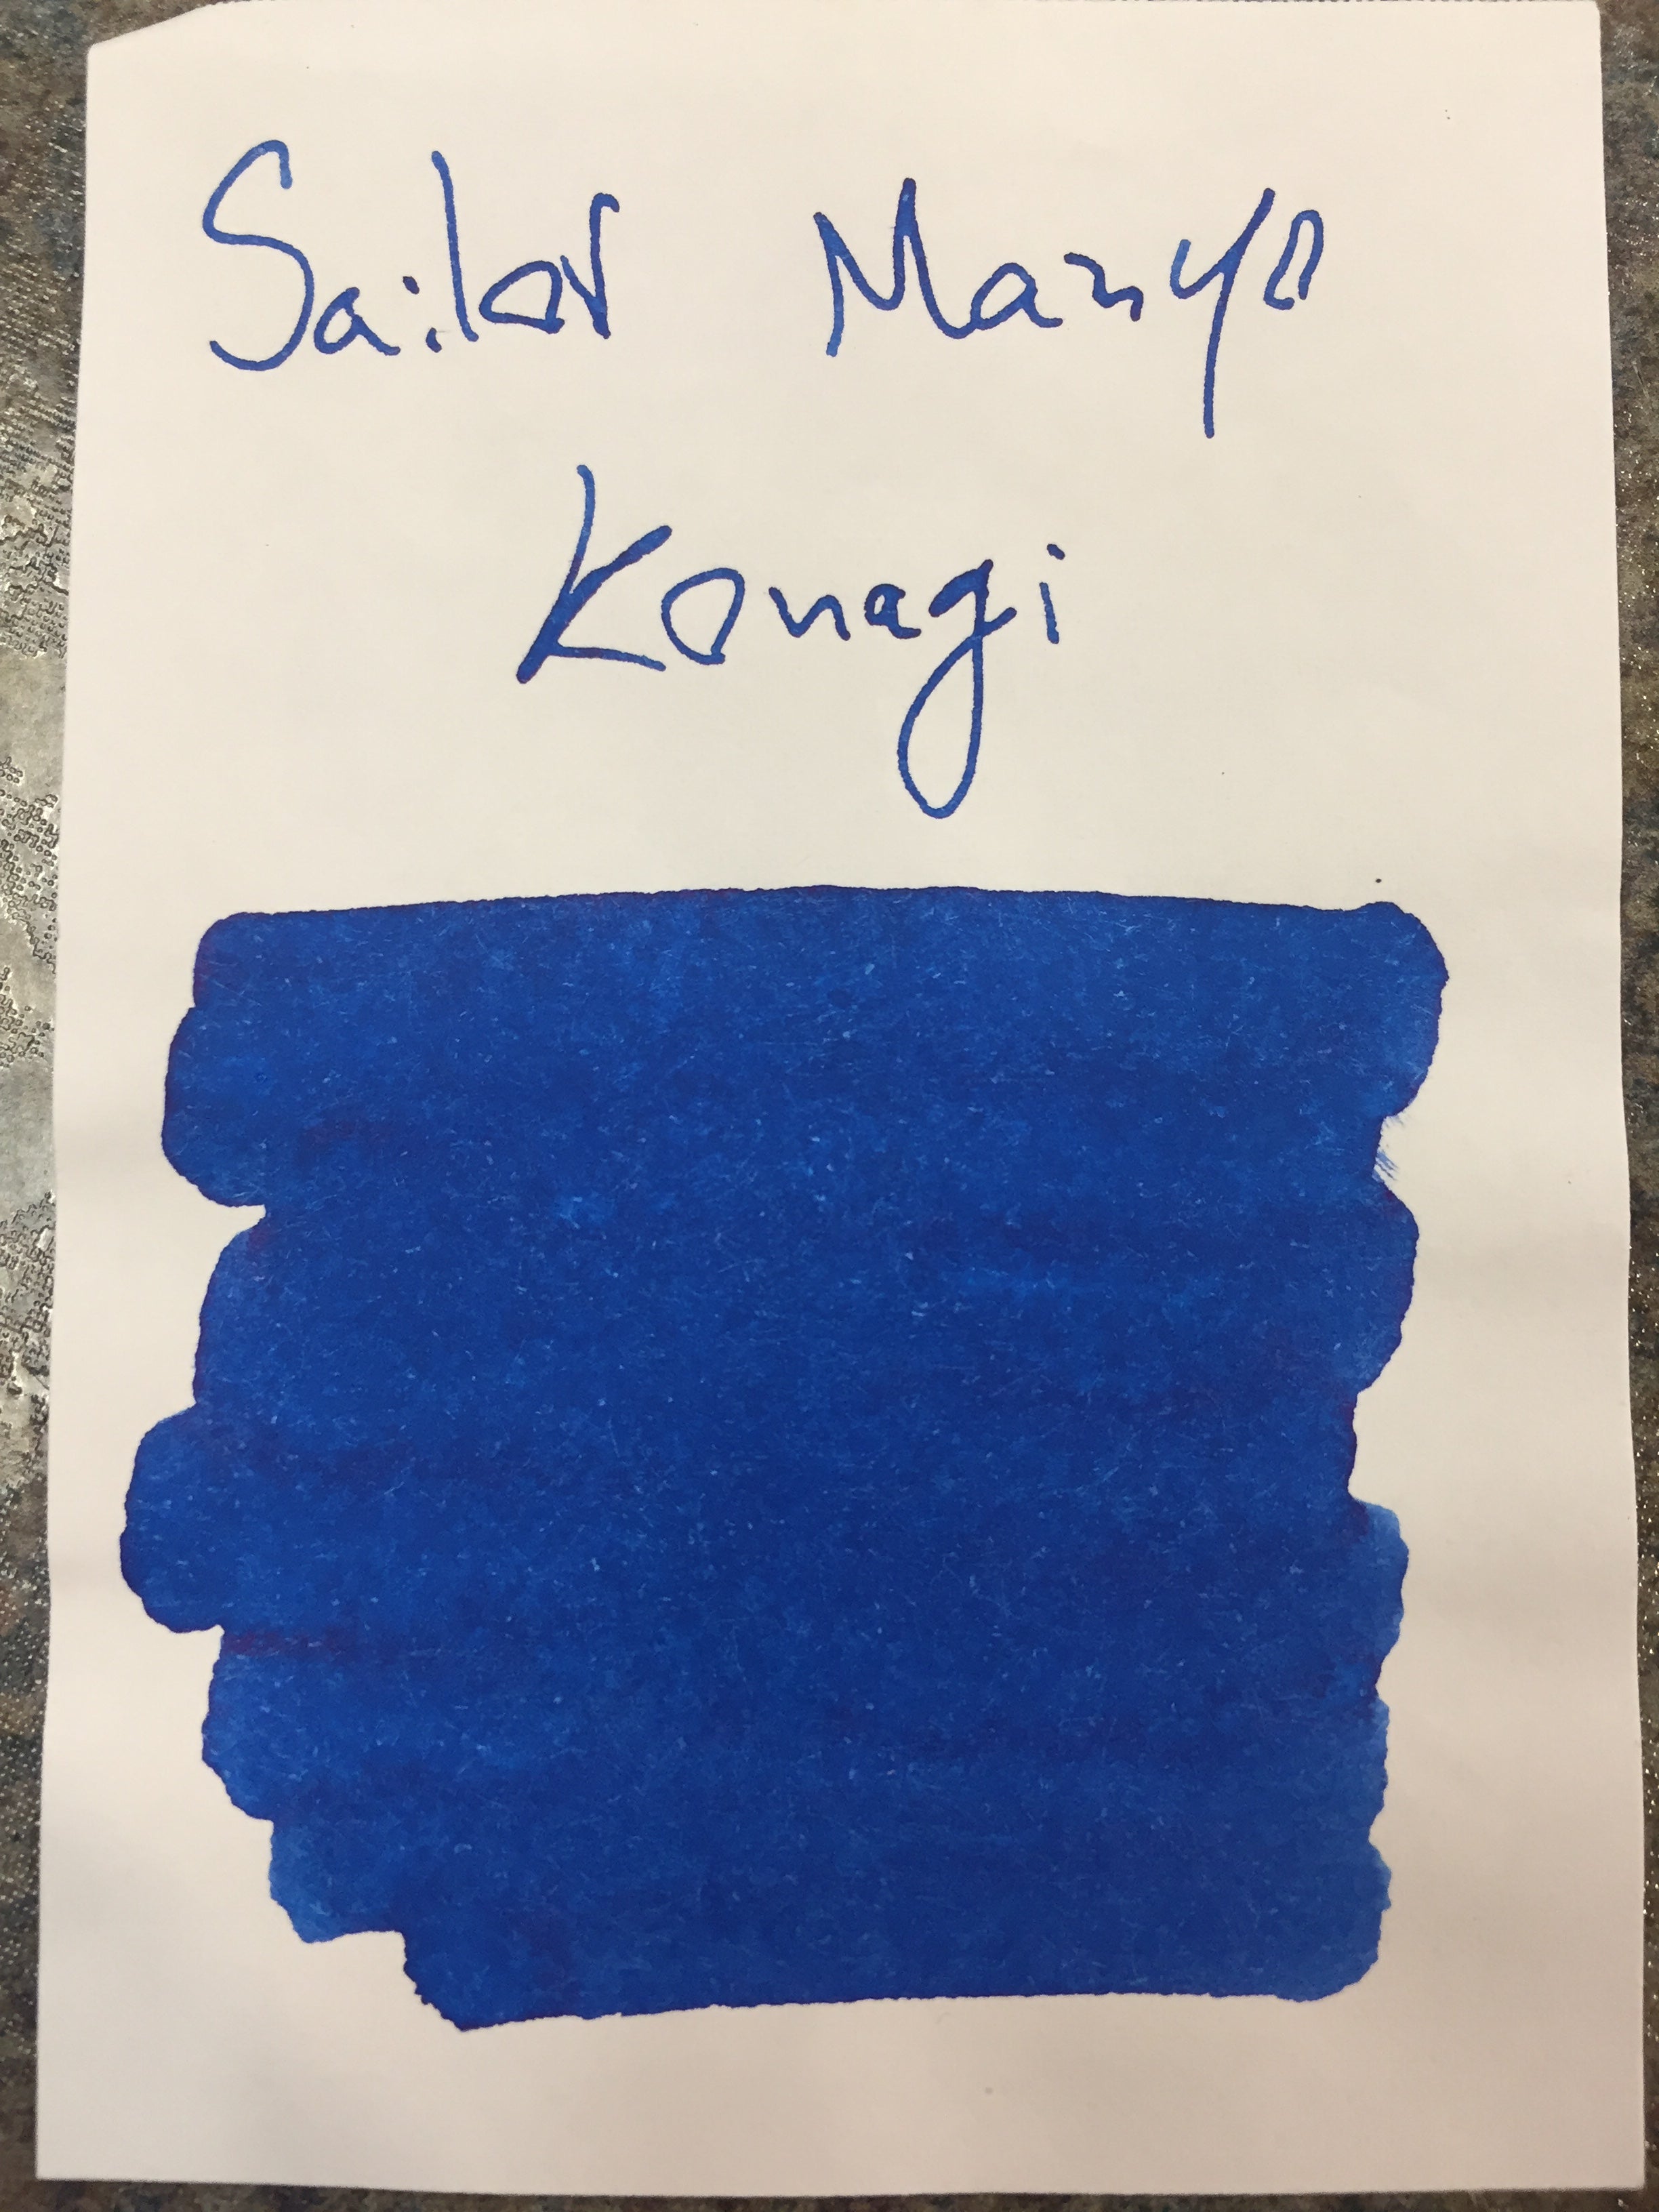 Sailor Manyo
Konagi